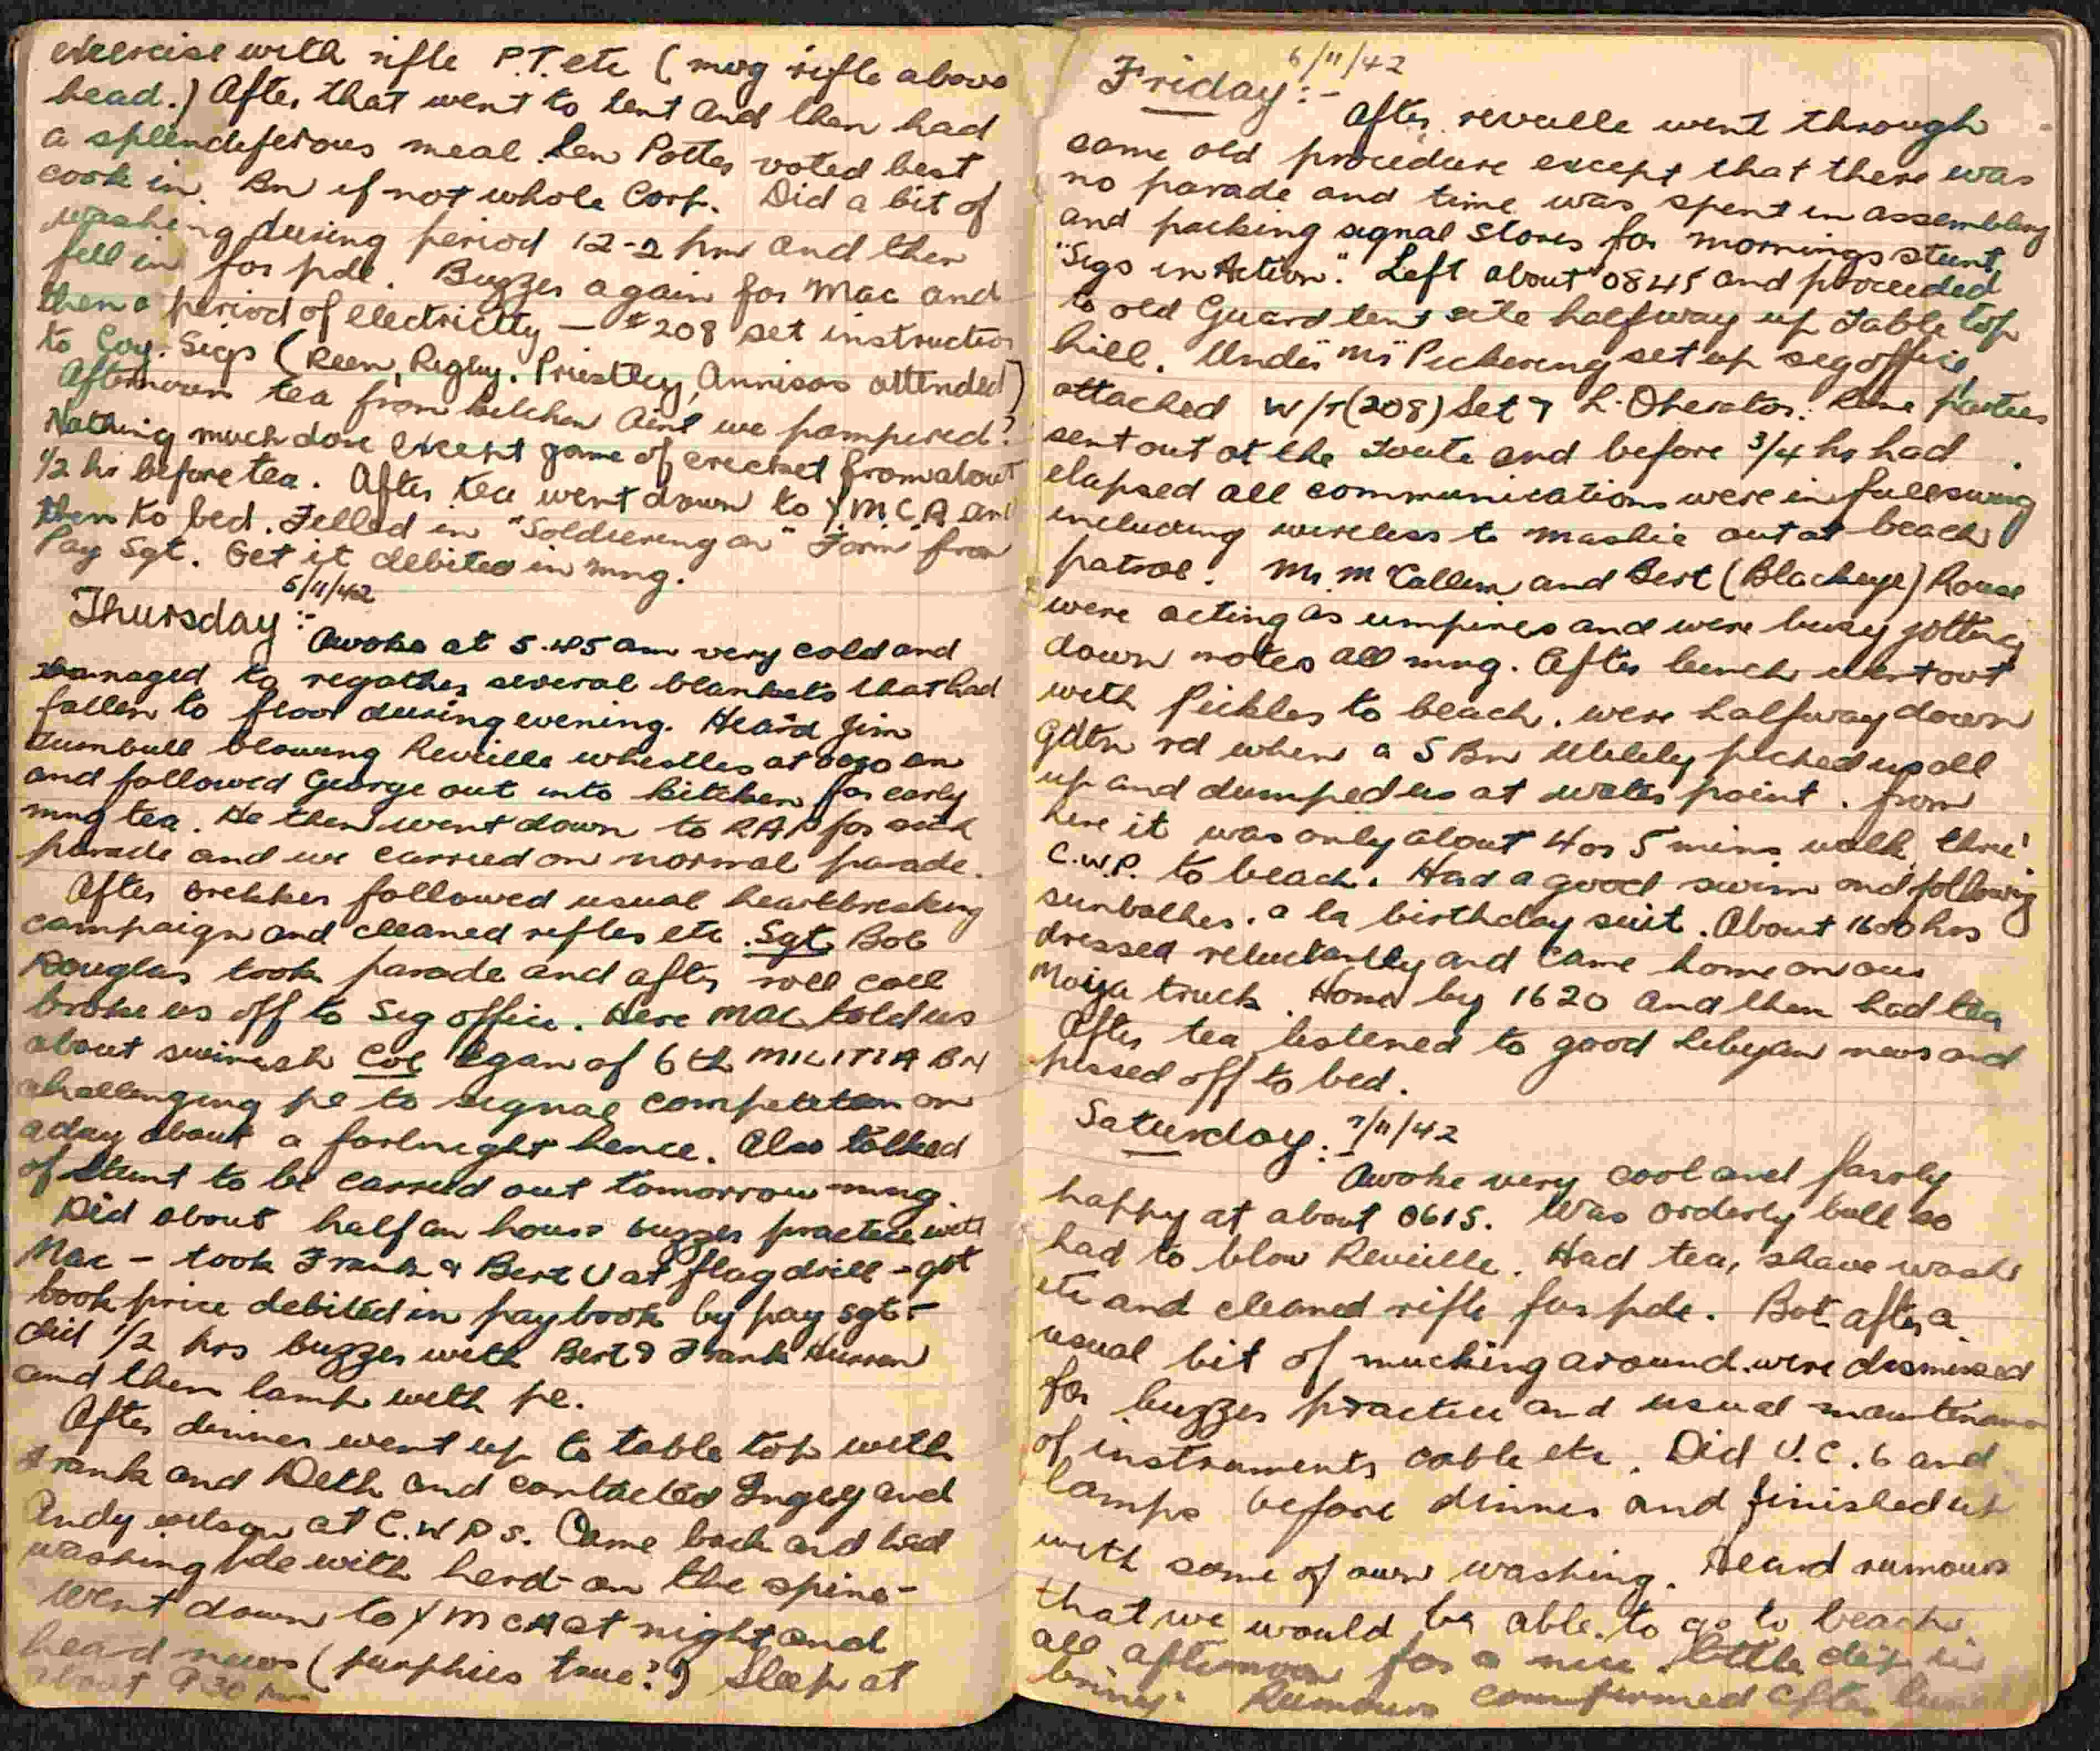 exercise with rifle P.T. etc (mvg rifle above
head.) After that went to tent and then had
a splendiferous meal. Len Potter voted best
cook in Bn if not whole Corp. Did a bit of
washing during period 12-2 pm and then
fell in for pde. Buzzer again for Mac and
then a period of electricity — 208 set instruction
to Coy. Sigs (Keen, Rigby, Priestley, Annison attended)
Afternoon tea from kitchen Aint we pampered?
Nothing much done except game of cricket from about
1/2 hr before tea. After tea went down to Y.M.C.A and
then to bed. Filled in "Soldiering on" Form from
Pay Sgt. Get it debited in mng.
Thursday :- 5/11/42
Awoke at 5.45 am very cold and
managed to regather several blankets that had
fallen to floor during evening. Heard Jim
Turnbull blowing Reveille whistles at am
and followed George out into kitchen for early
mng tea. He then went down to RAP for sick
parade and we carried on normal parade.
After brekker followed usual heartbreaking
campaign and cleaned rifles etc. Sgt Bob
Douglas took parade and after roll call
broke us off to Sig office. Here Mac told us
about swinish Col Egan of 6th MILITIA BN
challenging pl to signal competition on
a day about a fortnight hence. Also talked
of stunt to be carried out tomorrow mng.
Did about half an hour buzzer practice with
Mac - took Frank & Bert U at flag drill - got
book price debited in paybook by pay sgt -
did 1/2 hrs buzzer with Bert & Frank
and then lamp with pl.
After dinner went up to table top with
Frank and Keith and contacted and
Andy wilson at C.W.P s. Came back and had
washing pde with herd - on the spine -
Went down to YMCA at night and
heard news (furphies true?) Sleep at
about 9 30 pm
Friday :- 6/11/42
After reveille went through
same old procedure except that there was
no parade and time was spent in assembling
and packing signal stores for mornings stunt,
"Sigs in Action". Left about 0845 and proceeded
to old Guard tent site halfway up Table top
hill. Under "Mr" Pickering set up sig office,
attached W/T (208) Set & L. Operator. Line parties
sent out at the toute and before 3/4 hr had
elapsed all communications were in full swing
including wireless to Mashie out at beach
patrol. Mr McCallum and Bert (Blackeye) Rouse
were acting as umpires and were busy jotting
down notes all mng. After lunch went out
with Pickles to beach. were halfway down
Gdtn rd when a 5 Bn Utility picked us all
up and dumped us at water point. from
here it was only about 4 or 5 mins walk thro'
C.W.P. to beach. Had a good swim and following
sunbathes. a la birthday suit. About 1600 hrs
dressed reluctantly and came home on our
truck. Home by 1620 and then had tea
After tea listened to good Libyan news and
pissed off to bed.
Saturday :- 7/11/42
Awoke very cool and fairly
happy at about 0615. Was orderly bull so
had to blow Reveille. Had tea, shave wash
etc and cleaned rifle for pde. But after a
usual bit of mucking around were dismissed
for buzzer practice and usual maintenance
of instruments cable etc. Did U.C. 6 and
lamps before dinner and finished up
with some of our washing. Heard rumours
that we would be able to go to beach
all afternoon for a nice little dip in
briney. Rumours comfirmed after lunch